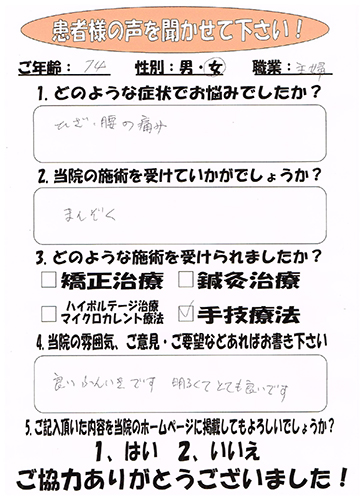 患者様の声を聞かせて下さい！
ご年齢： 74 性別：男・女 職業：主婦
1.どのような症状でお悩みでしたか？
ひざ・腰の痛み
2.当院の施術を受けていかがでしょうか？
まんぞく
3.どのような施術を受けられましたか？
矯正治療 鍼灸治療
ハイボルテージ治療
マイクロカレント療法 手技療法
4.当院の雰囲気、ご意見・ご要望などあればお書き下さい
良いふんいきです 明るくてとても良いです
5.ご記入頂いた内容を当院のホームページに掲載してもよろしいでしょうか？
1、はい 2、いいえ
ご協力ありがとうございました！